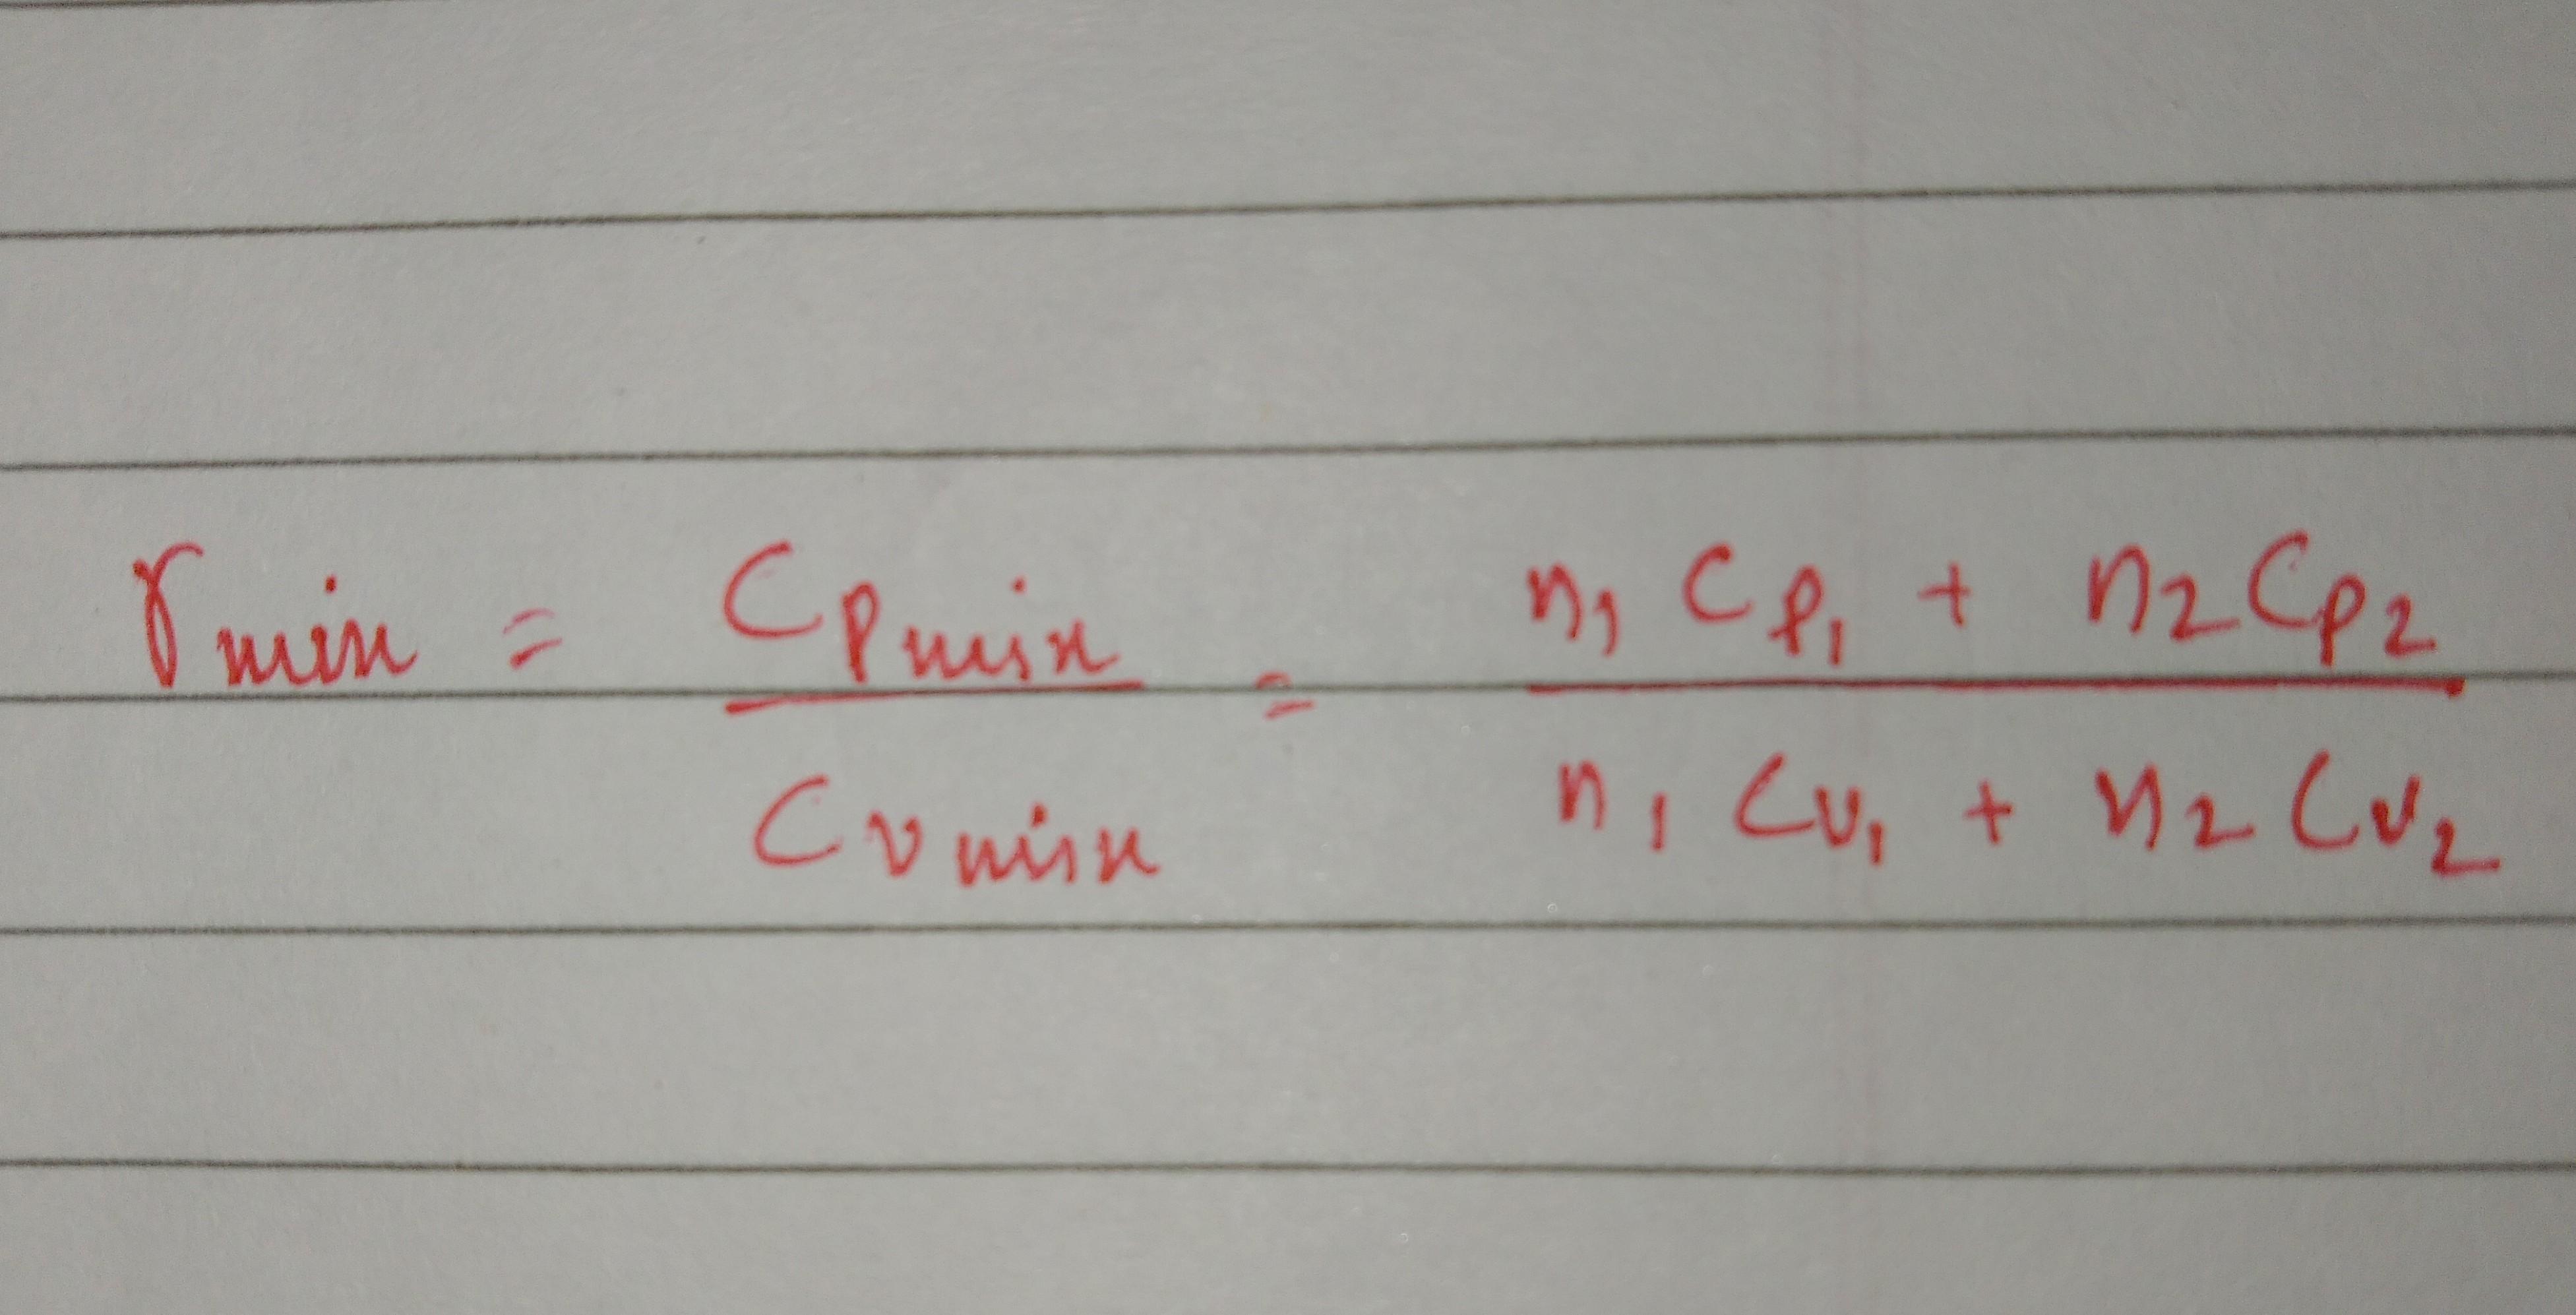 γmix = Cp mix / Cv mix = n₁ Cp₁ + n₂ Cp₂ / n₁ Cv₁ + n₂ Cv₂